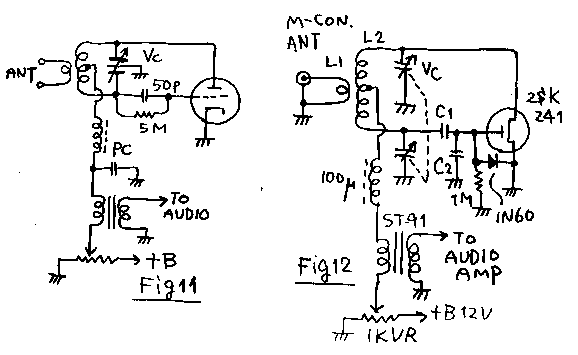 ANT
Vc
50P
5M
PC
TO
AUDIO
+B
Fig11
M-CON.
ANT
L1
L2
Vc
C1
2SK
241
C2
1M
1N60
100μ
ST91
TO
AUDIO
AMP
+B12V
1KVR
Fig12